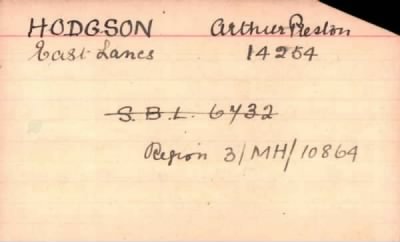 HODGSON Arthur Preston
East Lancs 14254
S.B.L. 6732
Region 3/MH/10864